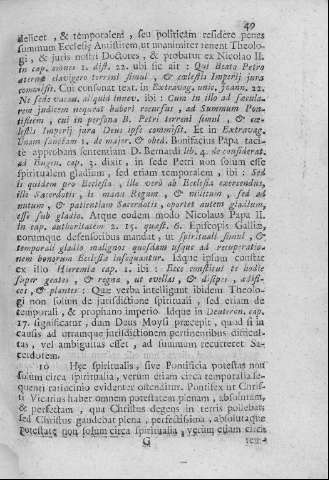 49
delicet , & temporalem , seu politicam residere penes
summum Ecclesię Antistitem, ut unanimiter tenent Theolo-
gi , & juris nostri Doctores , & probatur ex Nicolao II.
in cap. omnes 1. dist. 22. ubi sic ait : Qui Beato Petro
æternæ clavigero terreni simul , & cœlestis Imperij jura
commisit. Cui consonat text. in Extravag. unic. Joann. 22.
Ne sede vacan. aliquid innov. ibi : Cum in illo ad sæcula-
rem judicem nequeat haberi recursus , ad Summum Pon-
tificem , cui in persona B. Petri terreni simul , & cœ-
lestis Imperij jura Deus ipse commisit. Et in Extravag.
Unam sanctam 1. de major. & obed. Bonifacius Papa taci-
te approbans sententiam D. Bernardi lib. 4. de considerat.
ad Eugen. cap. 3. dixit , in sede Petri non solum esse
spiritualem gladium , sed etiam temporalem , ibi : Sed
is quidem pro Ecclesia , ille verò ab Ecclesia exercendus,
ille Sacerdotis , is manu Regum , & militum , sed ad
nutum , & patientiam Sacerdotis , oportet autem gladium,
esse sub gladio. Atque eodem modo Nicolaus Papa II.
in cap. authoritatem 2. 15. quæst. 6. Episcopis Galliæ,
eorumque defensoribus mandat , ut spirituali simul , &
temporali gladio malignos quosdam usque ad recuperatio-
nem bonorum Ecclesiæ insequantur. Idque ipsum constat
ex illo Hieremiæ cap. 1. ibi : Ecce constitui te hodie
super gentes , & regna , ut evellas , & disipes , ædifi-
ces , & plantes. Quæ verba intelligunt ibidem Theolo-
gi non solum de jurisdictione spirituali , sed etiam de
temporali , & prophano imperio. Idque in Deuteron. cap.
17. significatur , dum Deus Moysi præcepit , quod si in
causis ad utrumque jurisdictionem pertinentibus difficul-
tas , vel ambiguitas esset , ad summum recurreret Sa-
cerdotem.
10 Hęc spiritualis , sive Pontificia potestas non
solum circa spiritualia, verùm etiam circa temporalia se-
quenti ratiocinio evidenter ostenditur. Pontifex ut Chris-
ti Vicarius habet omnem potestatem plenam , absolutam,
& perfectam , qua Christus degens in terris pollebat;
sed Christus gaudebat plena , perfectissima , absolutaque
potestate non solum circa spiritualia , verùm etiam circa
G